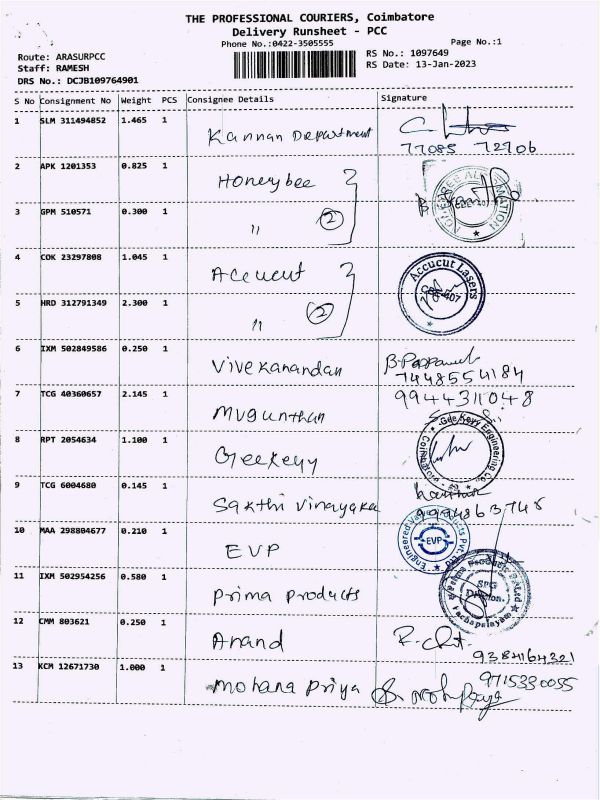 THE PROFESSIONAL COURIERS, Coimbatore
Delivery Runsheet - PCC
Phone No.:0422-3505555
Page No.:1
Route: ARASURPCC
Staff: RAMESH
DRS No.: DCJB109764901
RS No.: 1097649
RS Date: 13-Jan-2023
S No Consignment No Weight PCS Consignee Details Signature
1 SLM 311494852 1.465 1 Kannan Department
77085 72706
2 APK 1201353 0.825 1 Honeybee
3 GPM 510571 0.300 1 " 2
4 COK 23297808 1.045 1 Accucut
Accucut Lasers
5 HRD 312791349 2.300 1 " 2
6 IXM 502849586 0.250 1 Vivekanandan
7448554184
7 TCG 40360657 2.145 1 Mugunthan
9944311048
8 RPT 2054634 1.100 1 Geekeyy
Engineering Co.
9 TCG 6004680 0.145 1 Sakthi Vinayaka
10 MAA 298804677 0.210 1 EVP
EVP
11 IXM 502954256 0.580 1 Prima Products
SPG
Division
12 CMM 803621 0.250 1 Anand
9384164321
13 KCM 12671730 1.000 1 Mohana Priya
9715330055